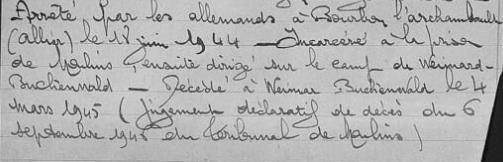 Arrêté par les allemands à Bourbon l'archambault
(allier) le 18 juin 1944 — Incarcéré à la prison
de Moulins, ensuite dirigé sur le camp de Weimard-
Buchenwald — Décédé à Weimar Buchenwald le 4
mars 1945 (jugement déclaratif de décès du 6
septembre 1946 du tribunal de Moulins)